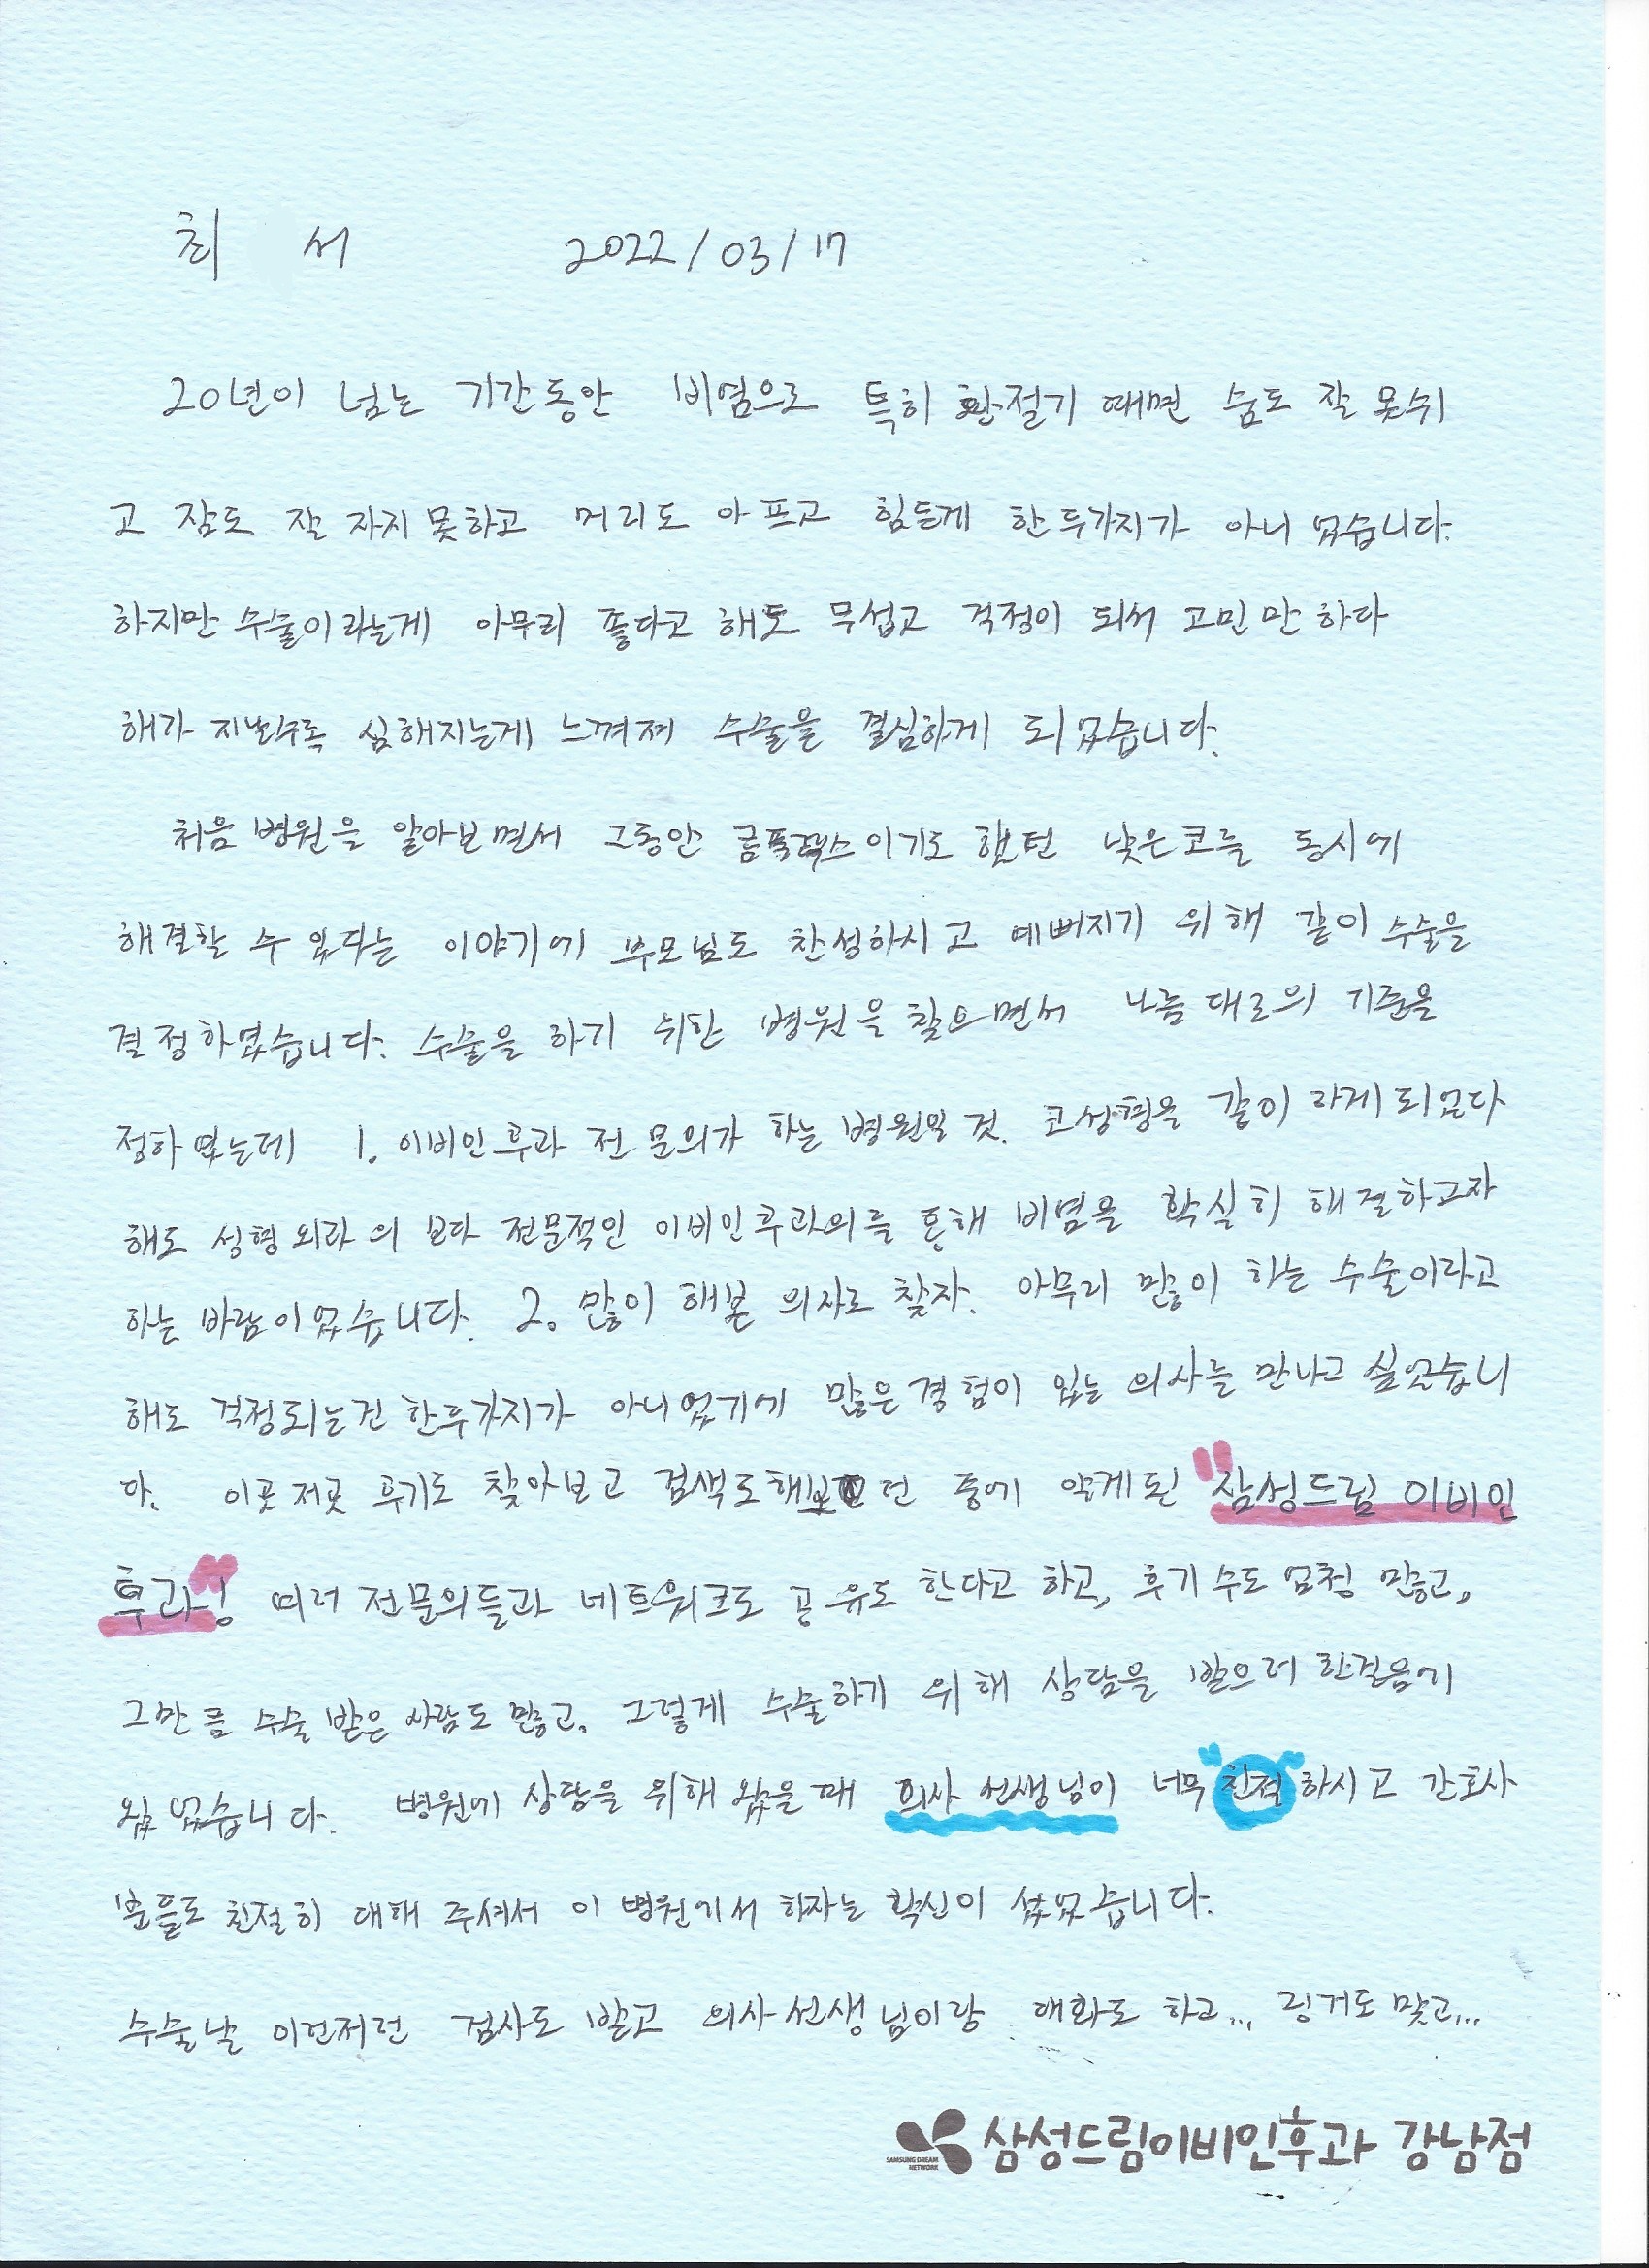 최 서 2022/03/17
20년이 넘는 기간동안 비염으로 특히 환절기 때면 숨도 잘 못쉬
고 잠도 잘 자지 못하고 머리도 아프고 힘든게 한두가지가 아니었습니다.
하지만 수술이라는게 아무리 좋다고 해도 무섭고 걱정이 되서 고민만 하다
해가 지날수록 심해지는게 느껴져 수술을 결심하게 되었습니다.
처음 병원을 알아보면서 그동안 콤플렉스이기도 했던 낮은코를 동시에
해결할 수 있다는 이야기에 부모님도 찬성하시고 예뻐지기 위해 같이 수술을
결정하였습니다. 수술을 하기 위한 병원을 찾으면서 나름대로의 기준을
정하였는데 1. 이비인후과 전문의가 하는 병원일 것. 코성형을 같이 하게되었다
해도 성형외과의 보다 전문적인 이비인후과의를 통해 비염을 확실히 해결하고자
하는 바람이었습니다. 2. 많이 해본 의사로 찾자. 아무리 많이 하는 수술이라고
해도 걱정되는건 한두가지가 아니었기에 많은경험이 있는 의사를 만나고 싶었습니
다. 이곳저곳 후기도 찾아보고 검색도해보던 중에 알게된 "삼성드림 이비인
후과"! 여러 전문의들과 네트워크도 공유도 한다고 하고, 후기수도 엄청 많고,
그만큼 수술 받은 사람도 많고, 그렇게 수술하기 위해 상담을 받으러 한걸음에
왔었습니다. 병원에 상담을 위해 왔을때 의사 선생님이 너무 친절하시고 간호사
분들도 친절히 대해 주셔서 이 병원에서 하자는 확신이 섰었습니다.
수술날 이런저런 검사도 받고 의사선생님이랑 대화도 하고... 링거도 맞고...
SAMSUNG DREAM NETWORK 삼성드림이비인후과 강남점